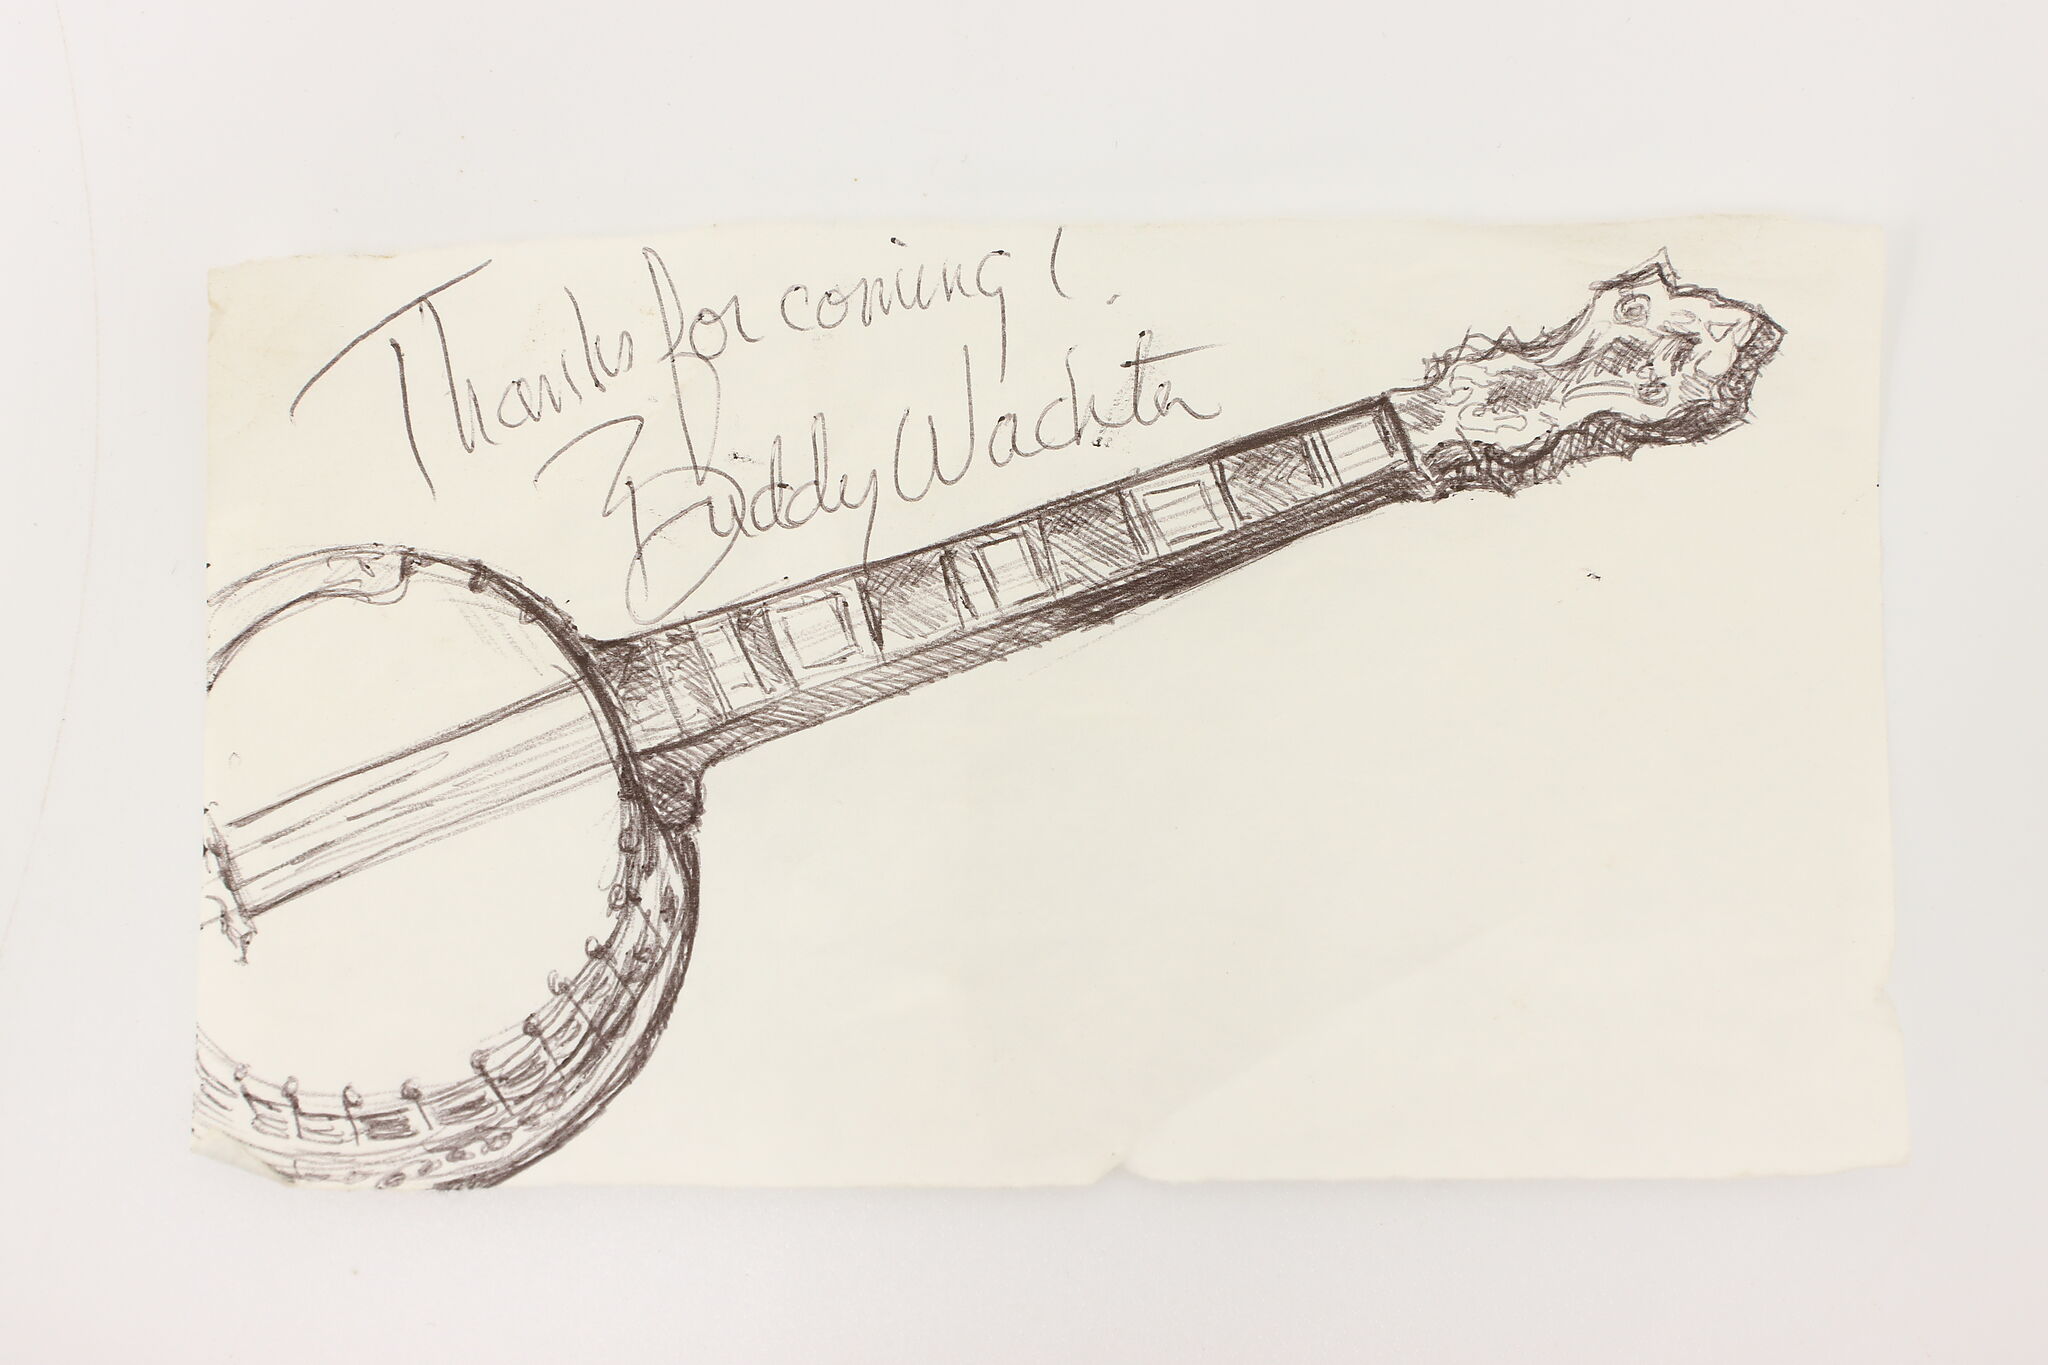 Thanks for coming!
Buddy Wachter